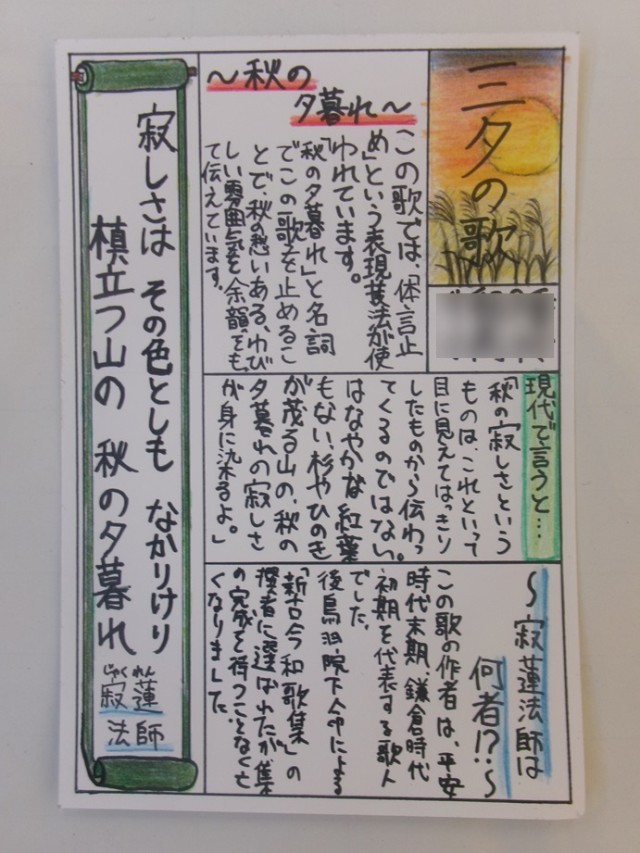 三夕の歌
～秋の
夕暮れ～
この歌では、「体言止
め」という表現技法が使
われています。
「秋の夕暮れ」と名詞
でこの歌を止めるこ
とで、秋の愁いある、わび
しい雰囲気を余韻をも
って伝えています。
現代で言うと…
「秋の寂しさという
ものは、これといって
目に見えてはっきり
したものから伝わっ
てくるのではない。
はなやかな紅葉
もない杉やひのき
が茂る山の、秋の
夕暮れの寂しさ
が身に染るよ。」
～寂蓮法師は
何者!?～
この歌の作者は、平安
時代末期、鎌倉時代
初期を代表する歌人
でした。
後鳥羽院下命による
「新古今和歌集」の
撰者に選ばれたが、集
の完成を待つことなく亡
くなりました。
寂しさは その色としも なかりけり
槙立つ山の 秋の夕暮れ
じゃくれん
寂蓮
法師